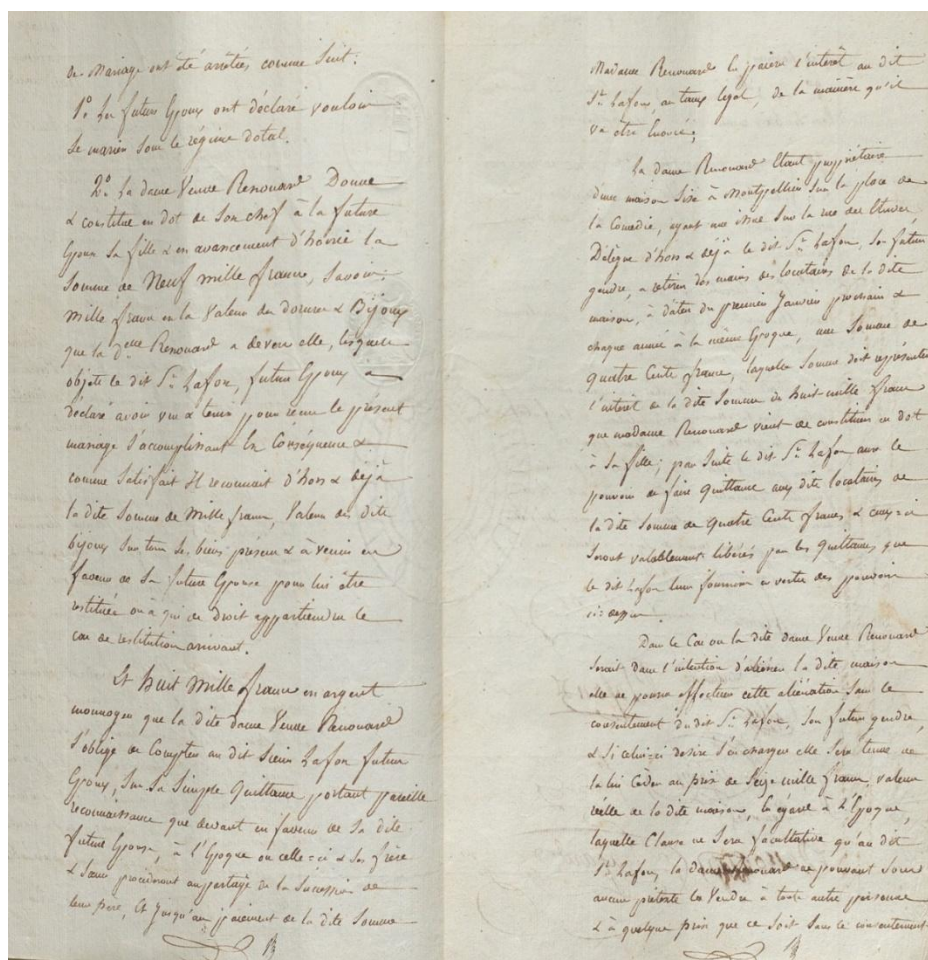 de Mariage ont été arrêtées comme suit:
1o. Les futurs Epoux ont déclaré vouloir
se marier sous le régime dotal.
2o. La dame Veuve Renouard Donne
& constitue en dot de son chef à la future
Epouse sa fille & en avancement d'hoirie la
somme de Neuf mille francs, savoir:
mille francs en la valeur des dorures & Bijoux
que la Delle Renouard a devers elle, lesquels
objets le dit Sr. Lafon, futur Epoux a
déclaré avoir vu & tenir pour reçus le présent
mariage s'accomplissant En Conséquence &
comme satisfait Il reconnait d'hors & déjà
la dite somme de Mille francs, valeur des dits
bijoux sur tous ses biens présens & à venir en
faveur de sa future Epouse pour lui être
restituée ou à qui de Droit appartiendra le
cas de restitution arrivant.
Et huit Mille francs en argent
monnoyé que la dite dame Veuve Renouard
s'oblige de Compter au dit sieur Lafon futur
Epoux, sur sa simple Quittance portant pareille
reconnaissance que devant en faveur de sa dite
future Epouse, à l'Epoque ou celle-ci & ses frère
& soeur procèderont au partage de la Succession de
leur père, Et jusqu'au paiement de la dite somme
Madame Renouard En paiera l'intérêt au dit
Sr. Lafon, au taux légal, de la manière qu'il
va être Enoncé;
La dame Renouard Etant propriétaire
d'une maison sise à Montpellier sur la place de
la Comédie, ayant une issue sur la rue des Etuves,
Délègue d'hors & déjà le dit Sr. Lafon, son futur
gendre, a retirer des mains des locataires de la dite
maison, à dater du premier Janvier prochain &
chaque année à la même Epoque, une somme de
Quatre Cents francs, laquelle somme doit représenter
l'intérêt de la dite somme de huit mille francs
que madame Renouard vient de constituer en dot
à sa fille; par suite le dit Sr. Lafon aura le
pouvoir de faire Quittance aux dits locataires de
la dite somme de Quatre Cents francs & ceux-ci
seront valablement libérés par les Quittances que
le dit Lafon leur fournira en vertu des pouvoirs
ci-dessus.
Dans le Cas ou la dite dame Veuve Renouard
serait dans l'intention d'aliéner la dite maison
elle ne pourra effectuer cette aliénation sans le
consentement du dit Sr. Lafon, son futur gendre,
& si celui-ci désire s'en charger elle sera tenue de
la lui Céder au prix de Seize mille francs, valeur
réelle de la dite maison, Eu égard à l'Epoque,
laquelle Clause ne sera facultative qu'au dit
Sr. Lafon, la dame Renouard ne pouvant sous
aucun prétexte la Vendre à toute autre personne
& à quelque prix que ce soit sans le consentement